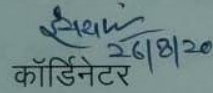 26/8/20
कॉर्डिनेटर